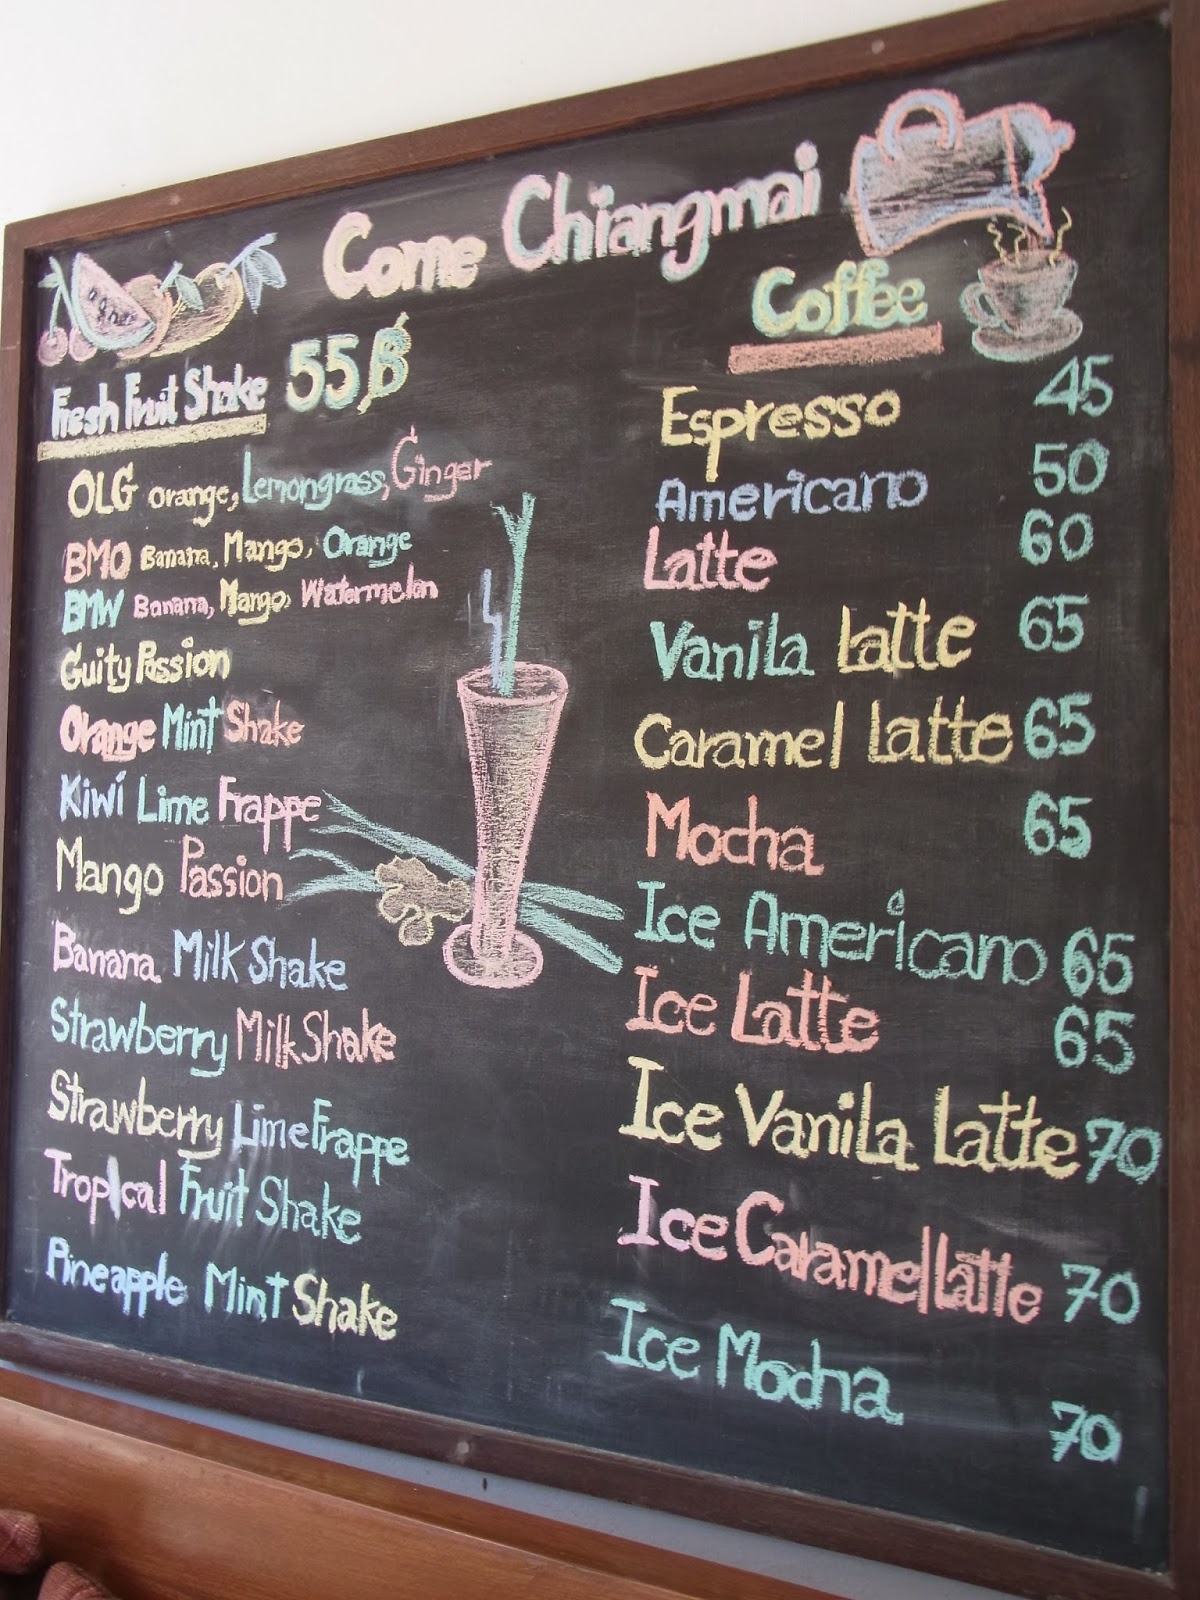 Come Chiangmai
Fresh Fruit Shake 55฿
OLG orange, Lemongrass, Ginger
BMO Banana, Mango, Orange
BMW Banana, Mango, Watermelon
Guity Passion
Orange Mint Shake
Kiwi Lime Frappe
Mango Passion
Banana Milk Shake
Strawberry Milk Shake
Strawberry Lime Frappe
Tropical Fruit Shake
Pineapple Mint Shake
Coffee
Espresso 45
Americano 50
Latte 60
Vanila Latte 65
Caramel Latte 65
Mocha 65
Ice Americano 65
Ice Latte 65
Ice Vanila Latte 70
Ice Caramel Latte 70
Ice Mocha 70